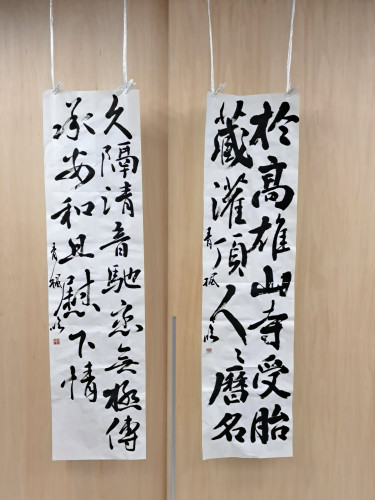 於高雄山寺受胎
藏灌頂人々暦名
青楓臨
久隔清音馳恋無極傳
承安和且慰下情
青楓臨